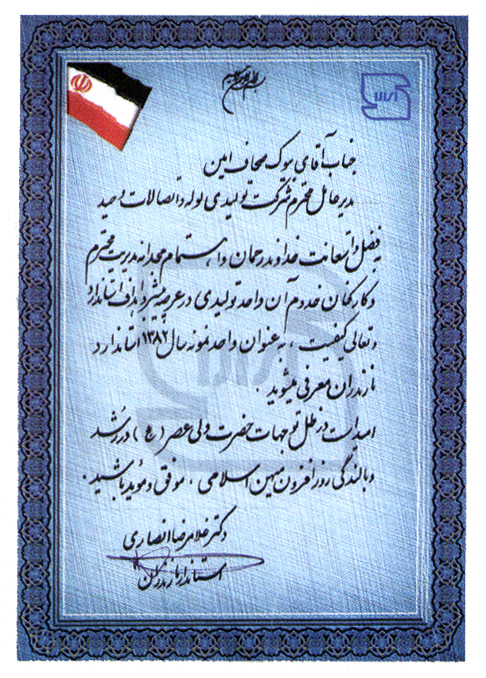 بسم الله الرحمن الرحیم
جناب آقای سوک صحاف امین
مدیر عامل محترم شرکت تولیدی لوله و اتصالات وحید
بفضل و استعانت خداوند رحمان و اهتمام مجدانه مدیریت محترم
و کارکنان خدوم آن واحد تولیدی در عرصه پیشبرد اهداف استاندارد
و تعالی کیفیت ، به عنوان واحد نمونه سال ۱۳۸۲ استاندارد
مازندران معرفی میشوید .
امید است در ظل توجهات حضرت ولی عصر (عج) در رشد
و بالندگی روزافزون میهن اسلامی ، موفق و مؤید باشید .
دکتر غلامرضا انصاری
استاندار مازندران